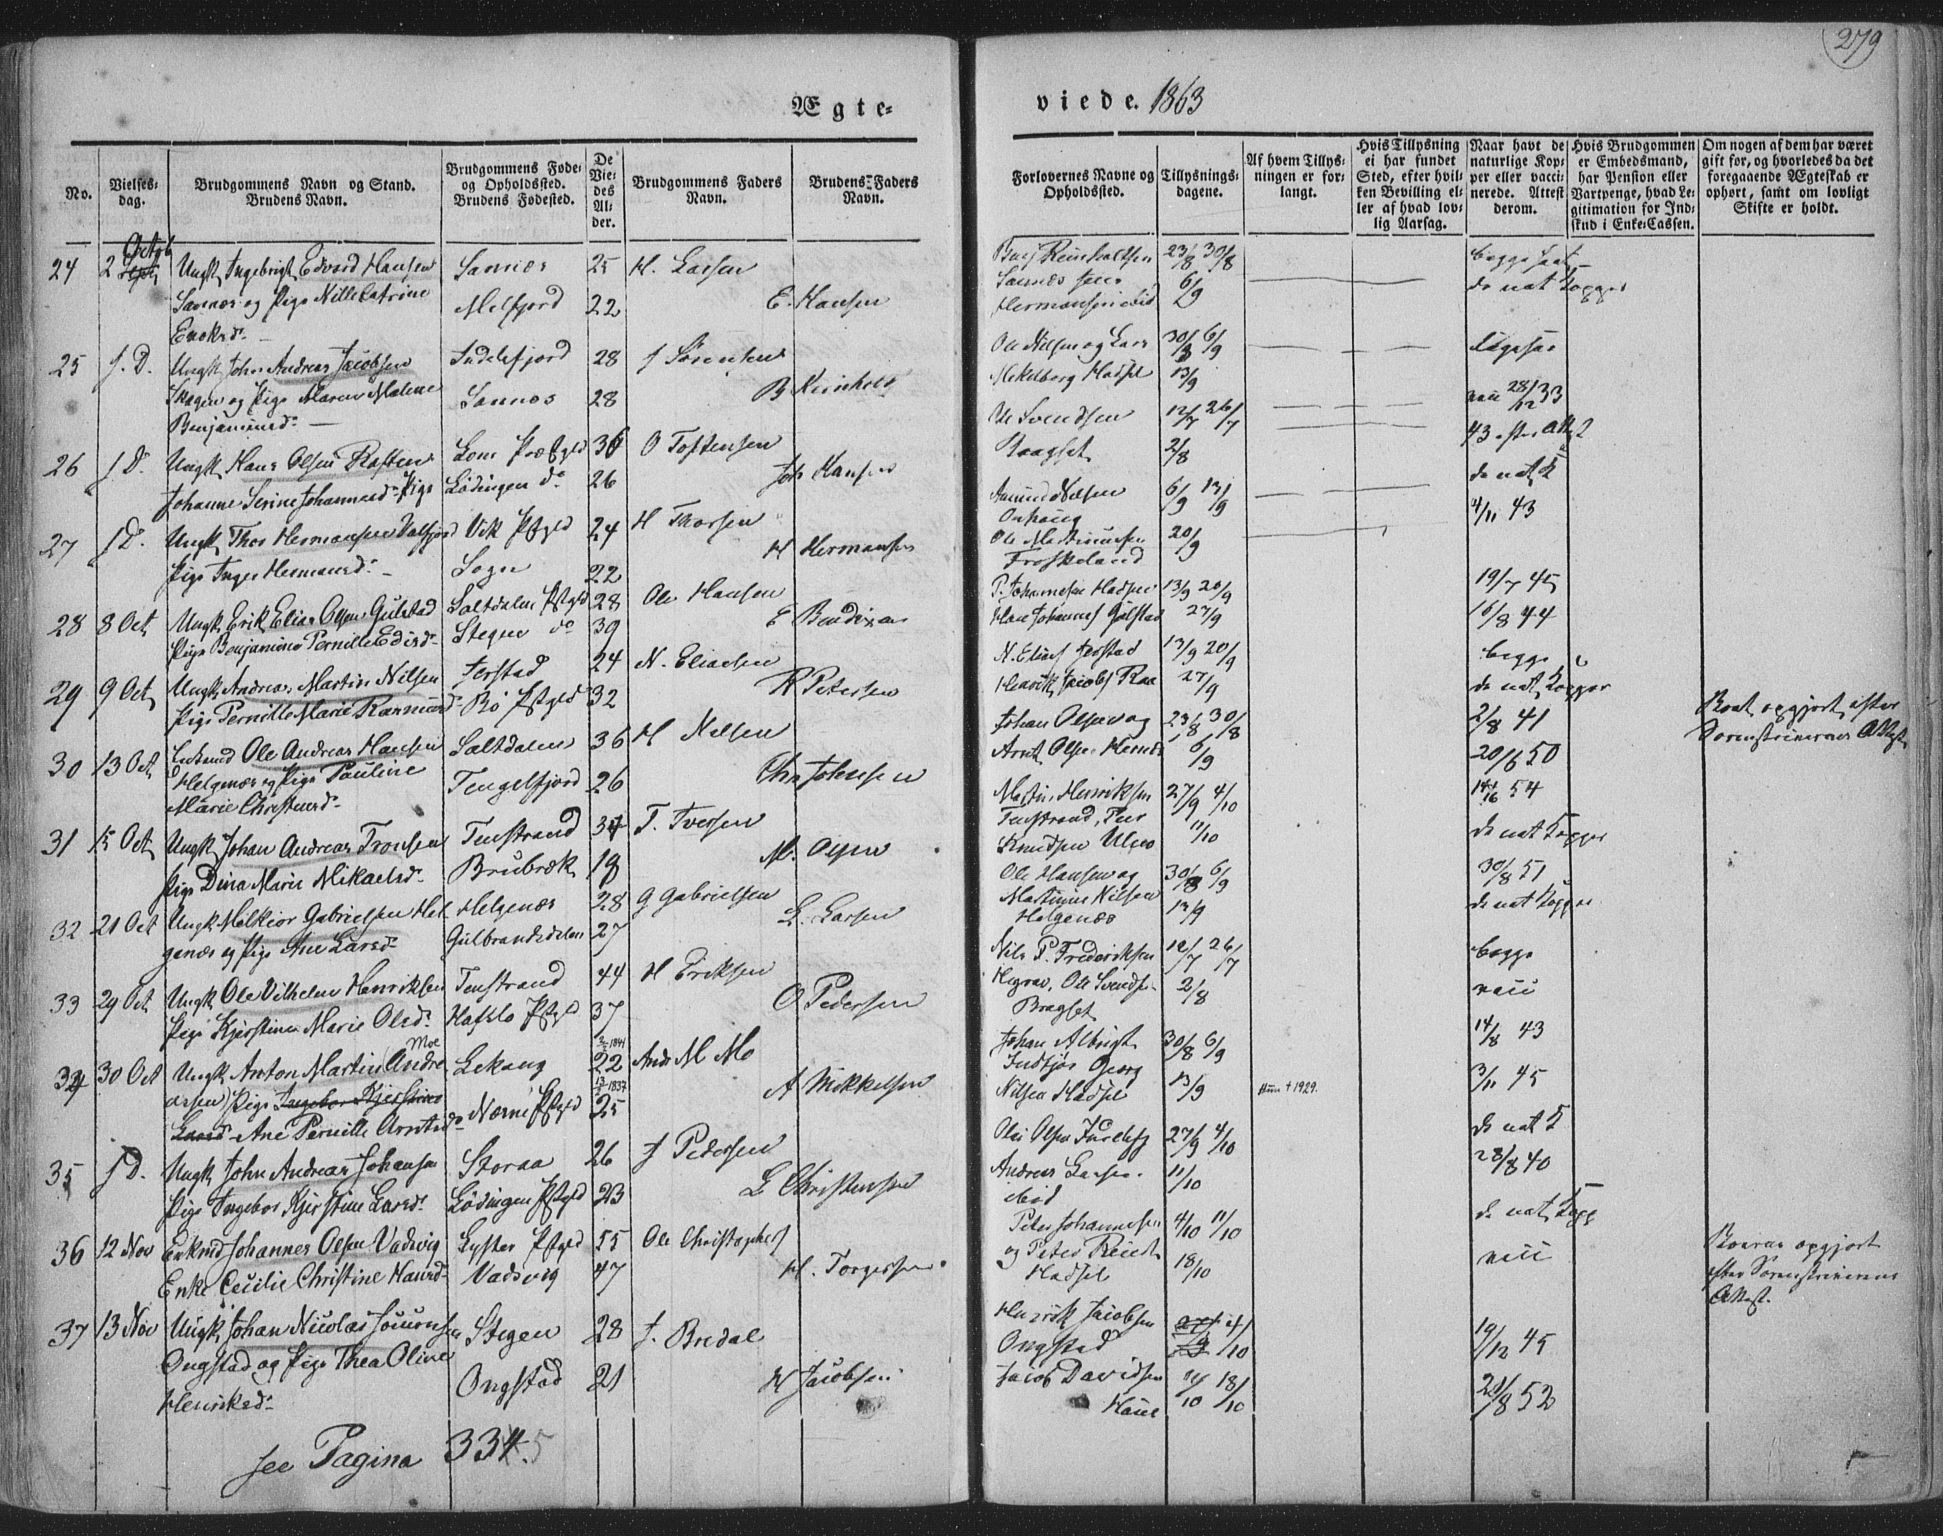 279
Ægte-
viede. 1863
No.
Vielses-
dag.
Brudgommens Navn og Stand.
Brudens Navn.
Brudgommens Føde-
og Opholdssted.
Brudens Fødested.
De
Vie-
des
Al-
der.
Brudgommens Faders
Navn.
Brudens Faders
Navn.
Forlovernes Navne og
Opholdssted.
Tillysnings-
dagene.
Af hvem Tillys-
ningen er for-
langt.
Hvis Tillysning
ei har fundet
Sted, efter hvil-
ken Bevilling el-
ler af hvad lov-
lig Aarsag.
Naar havt de
naturlige Kop-
per eller vacci-
nerede. Attest
derom.
Hvis Brudgommen
er Embedsmand,
har Pension eller
Vartpenge, hvad Le-
gitimation for Ind-
skud i Enke-Cassen.
Om nogen af dem har været
gift før, og hvorledes da det
foregaaende Ægteskab er
ophørt, samt om lovligt
Skifte er holdt.
24 2 Octob Sept Ungk Ingebrigt Edvard Hansen Sannæs 25 H. Larsen
Sannæs og Pige Nille Catrine Melfjord 22 E. Hansen
Enoksd.
25 J. D. Ungk John Andreas Jacobsen Indelsfjord 28 J Sørensen
Skagen og Pige Maren Malene Sannæs 28 B Reinhold
Benjaminsd.
26 J D. Ungk Hans Olsen Lom Præstgld 36 O Tostensen
Johanne Serine Johannesd. Pige Lødingen do 26 Joh Hansen
27 J D. Ungk Thor Hermansen Valfjord Vik Pstgld 24 H Thorsen
Pige Inger Hermansd. Sogn 22 H Hermansen
28 8 Oct Ungk Erik Elias Olsen Gulstad Saltdalen Pstgld 28 Ole Hansen
Pige Benjamine Pernille Edisd. Stegen do 39 E Bendixen
29 9 Oct Ungk Andreas Martin Nilsen Jerstad 24 N. Eliasen
Pige Pernille Marie Rasmusd. Bø Pstgld 32 R Petersen
30 13 Oct Enkmd Ole Andreas Hansen Saltdalen 36 H Nelsen
Helgenæs og Pige Pauline Tengelfjord 26 Chr Johnsen
Marie Christensd.
31 15 Oct Ungk Johan Andreas Tronsen Tenstrand 34 T. Iversen
Pige Dina Marie Mikaelsd. Brubræk 18 M. Olsen
32 21 Oct Ungk Melkior Gabrielsen Hel Helgenæs 28 G Gabrielsen
genæs og Pige Ane Larsd. Gulbrandsdalen 27 L. Larsen
33 29 Oct Ungk Ole Vilhelm Henriksen Tenstrand 44 H Eriksen
Pige Kjerstine Marie Olsd. Hafslo Pstgld 37 O Pedersen
Moe
34 30 Oct Ungk Anton Martin (Andre Lekang 1841 22 Andr M Mo
assen) Pige Ingebor Kjerstine Nærøe Pstgld 1837 25 A Mikkelsen
Larsd. Ane Pernille Arntsd.
35 J D. Ungk John Andreas Johansen Storaa 26 J Pedersen
Pige Ingebor Kjerstine Larsd. Lødingen Pstgld 23 L Christensen
36 12 Nov Enkmd Johannes Olsen Vadsvig Lyster Pstgld 55 Ole Christophers
Enke Cecilie Christine Hansd. Vadsvig 47 H. Torgersen
37 13 Nov Ungk Johan Nicolas Stegen 28 J. Bredal
Ongstad og Pige Thea Oline Ongstad 21 H Jacobsen
Henriksd.
see Pagina 334.5
Benj Reinholtsen 23/8 30/8
Sannæs Jens 6/9
Hermansen ibid
begge
de nat Kopper
Ole Nilsen og Lars 30/8 6/9
Mekelborg Hadsel 13/9
ligesaa
vacc 28/12 33
Ole Svendsen 12/7 26/7
Baagset 2/8
43 efter Att
de nat K
Amund Nilsen 6/9 13/9
Ole Martinusen 20/9
Froskeland
4/11 43
P. Johannesen Hadsel 13/9 20/9
Hans Johannes Gulstad 27/9
19/7 45
16/8 44
N. Elias Jerstad 13/9 20/9
Henrik Jacobs Raa 27/9
begge
de nat Kopper
Johan Olsen og 23/8 30/8
Arnt Olsen Hernes 6/9
2/8 41
20/6 50
Boet opgjort efter
Sorenskriverens Attest
Martin Henriksen 27/9 4/10
Tenstrand, Peer 11/10
Knudsen
54
de nat Kopper
Ole Hansen og 30/8 6/9
Martinus Nilsen 13/9
Helgenæs
30/8 51
de nat Kopper
Nils P. Frederiksen 12/7 26/7
Ole Svendsen 2/8
Bragset
begge
vacc
Johan Albrigt 30/8 6/9
Georg 13/9
Nilsen Hadsel
Hun + 1929.
14/8 43
3/11 45
Ole Olsen 27/9 4/10
Andreas Larsen 11/10
ibid
de nat K
28/8 40
Peter Johannesen 4/10 11/10
og Peter 18/10
Hadsel
de nat Kopp
vacc
Boerne opgjort
efter Sorenskriverens
Attest.
Henrik Jacobsen 4/10
Ongstad
Jacob Davidsen 11/10 18/10
19/12 45
21/8 52